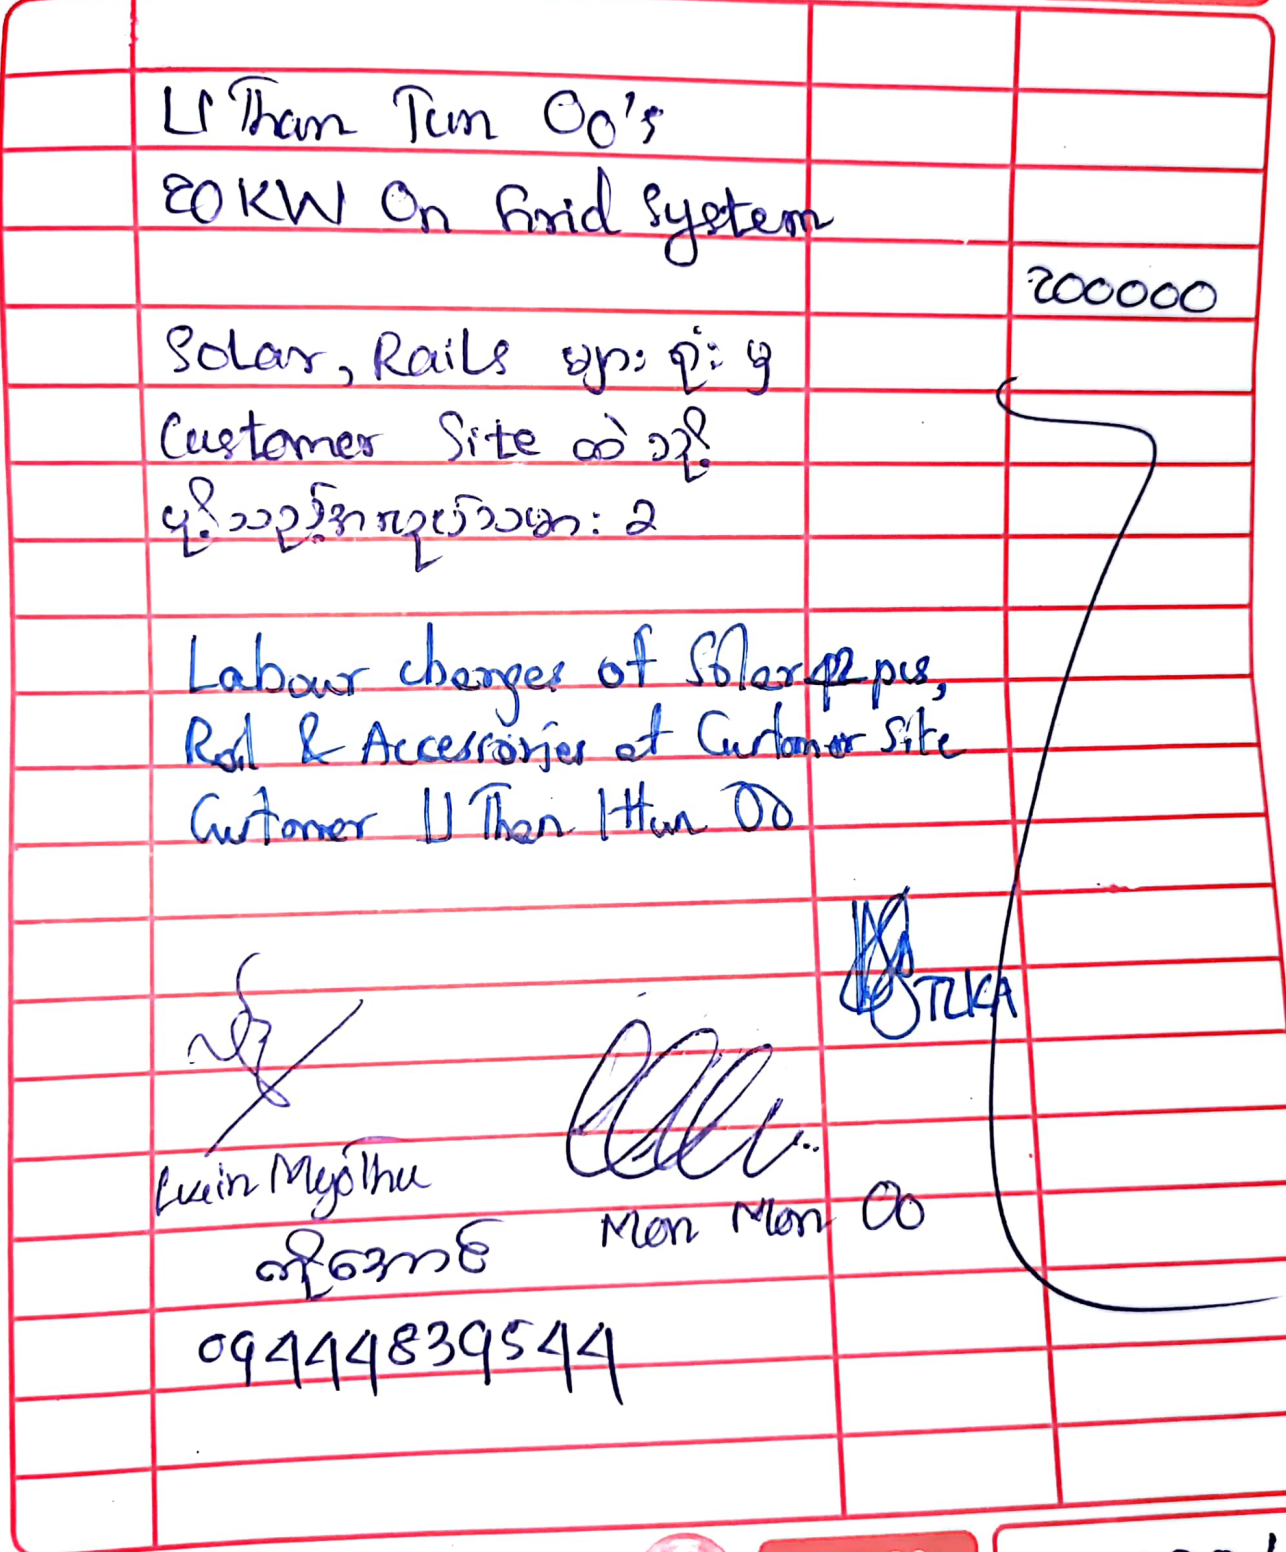 U Than Tun Oo's
20KW On Grid System
200000
Solar, Rails များ ရုံး မှ
Customer Site ထဲ သို့
ပို့သည့်အလုပ်သမား : ခ
Labour charges of Solar 42 pcs,
Rail & Accessories at Customer Site
Customer U Than Htun Oo
TZKA
Lwin Myo Thu
Mon Mon Oo
ကိုအောင်
09444839544